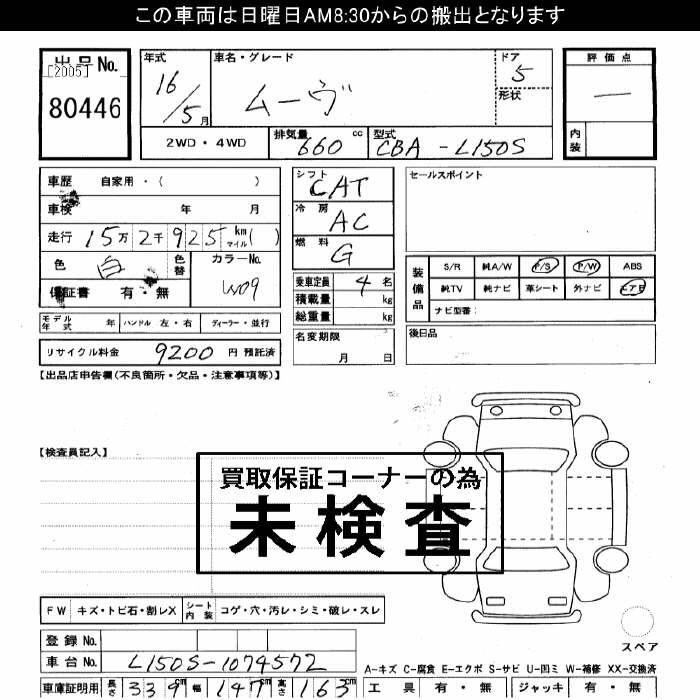 この車両は日曜日AM8:30からの搬出となります
出品No.
[2005]
80446
年式 16/5月
車名・グレード ムーヴ
ドア 5
形状
評価点 ー
内装
2WD・4WD
排気量 660 cc
型式 CBA-L150S
車歴 自家用・( )
車検 年 月
走行 15万2千925 km マイル( )
色 白 色替
カラーNo. W09
保証書 有・無
モデル年式 年 ハンドル 左・右 ディーラー・並行
リサイクル料金 9200 円 預託済
シフト CAT
冷房 AC
燃料 G
乗車定員 4 名
積載量 kg
総重量 kg
名変期限 月 日
セールスポイント
装備品
S/R 純A/W P/S P/W ABS
純TV 純ナビ 革シート 外ナビ エアB
ナビ型番:
後日品
【出品店申告欄(不良箇所・欠品・注意事項等)】
【検査員記入】
買取保証コーナーの為
未検査
FW キズ・トビ石・割レX シート内装 コゲ・穴・汚レ・シミ・破レ・スレ
登録No.
車台No. L150S-1074572
車庫証明用 長さ 339cm 幅 147cm 高さ 163cm
スペア
A-キズ C-腐食 E-エクボ S-サビ U-凹ミ W-補修 XX-交換済
工具 有・無 ジャッキ 有・無